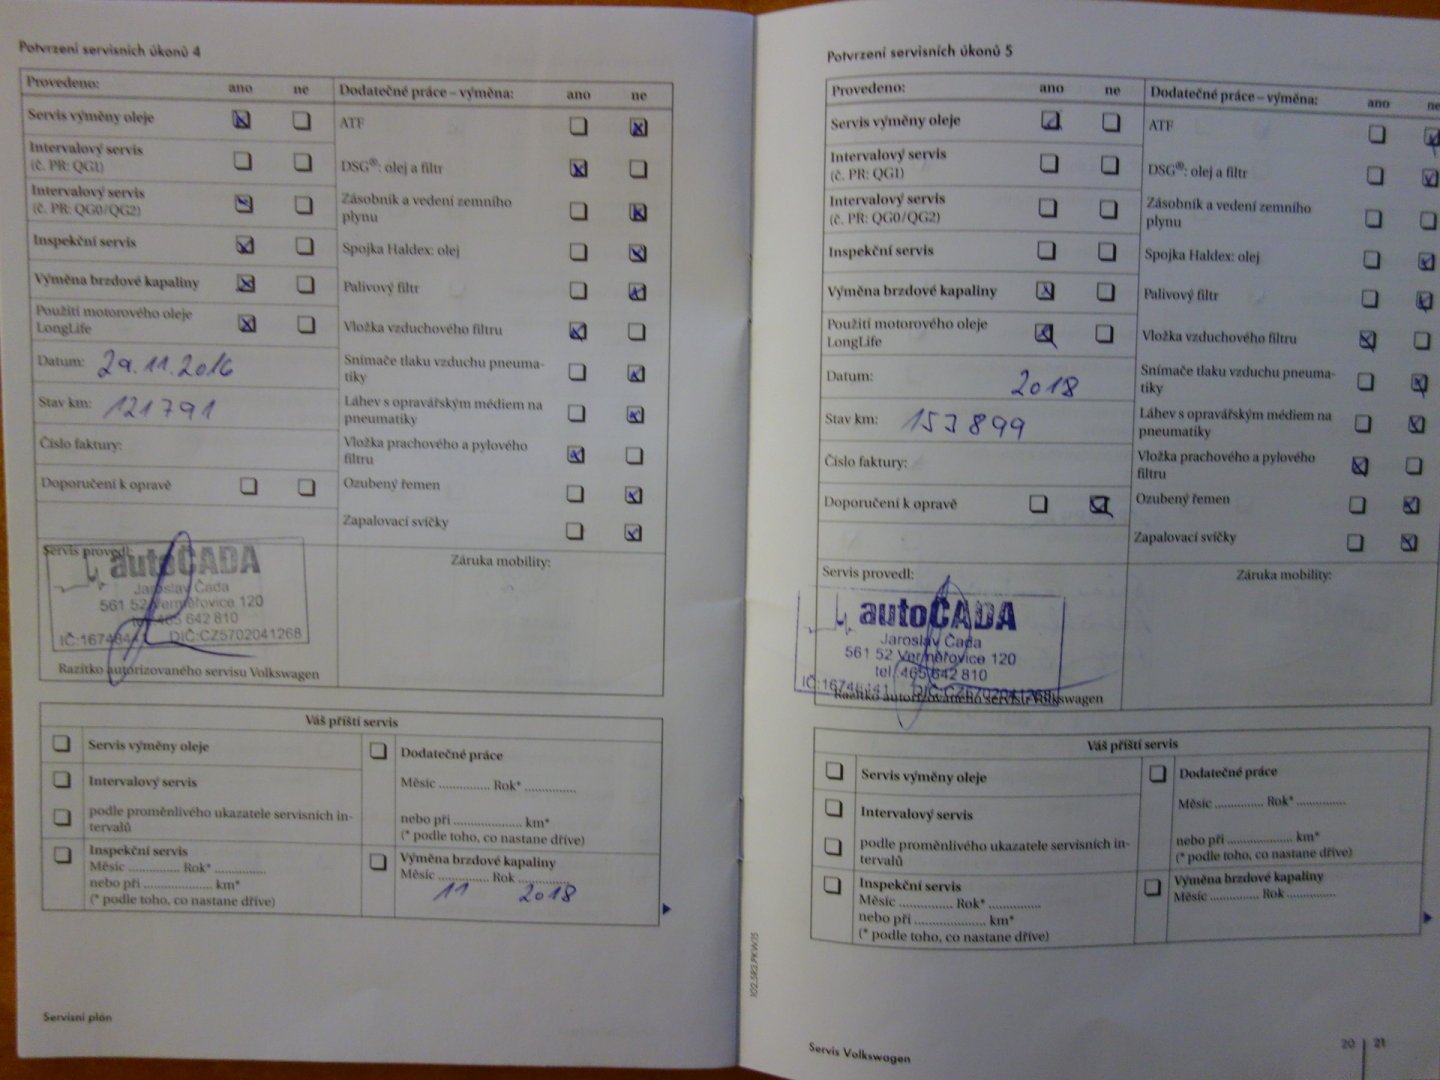 Potvrzení servisních úkonů 4
Provedeno: ano ne
Servis výměny oleje
Intervalový servis
(č. PR: QG1)
Intervalový servis
(č. PR: QG0/QG2)
Inspekční servis
Výměna brzdové kapaliny
Použití motorového oleje
LongLife
Datum: 29.11.2016
Stav km: 121791
Číslo faktury:
Doporučení k opravě
Servis provedl:
autoČADA
Jaroslav Čada
561 52 Verměřovice 120
tel. 465 642 810
DIČ:CZ5702041268
Razítko autorizovaného servisu Volkswagen
Dodatečné práce – výměna: ano ne
ATF
DSG®: olej a filtr
Zásobník a vedení zemního
plynu
Spojka Haldex: olej
Palivový filtr
Vložka vzduchového filtru
Snímače tlaku vzduchu pneuma-
tiky
Láhev s opravářským médiem na
pneumatiky
Vložka prachového a pylového
filtru
Ozubený řemen
Zapalovací svíčky
Záruka mobility:
Váš příští servis
Servis výměny oleje
Intervalový servis
podle proměnlivého ukazatele servisních in-
tervalů
Inspekční servis
Měsíc ............... Rok* ...............
nebo při .................... km*
(* podle toho, co nastane dříve)
Dodatečné práce
Měsíc ............... Rok* ...............
nebo při .................... km*
(* podle toho, co nastane dříve)
Výměna brzdové kapaliny
Měsíc ............... Rok ...............
11 2018
Servisní plán
Potvrzení servisních úkonů 5
Provedeno: ano ne
Servis výměny oleje
Intervalový servis
(č. PR: QG1)
Intervalový servis
(č. PR: QG0/QG2)
Inspekční servis
Výměna brzdové kapaliny
Použití motorového oleje
LongLife
Datum: 2018
Stav km: 153899
Číslo faktury:
Doporučení k opravě
Servis provedl:
autoČADA
Jaroslav Čada
561 52 Verměřovice 120
tel. 465 642 810
DIČ:CZ5702041268
Razítko autorizovaného servisu Volkswagen
Dodatečné práce – výměna: ano ne
ATF
DSG®: olej a filtr
Zásobník a vedení zemního
plynu
Spojka Haldex: olej
Palivový filtr
Vložka vzduchového filtru
Snímače tlaku vzduchu pneuma-
tiky
Láhev s opravářským médiem na
pneumatiky
Vložka prachového a pylového
filtru
Ozubený řemen
Zapalovací svíčky
Záruka mobility:
Váš příští servis
Servis výměny oleje
Intervalový servis
podle proměnlivého ukazatele servisních in-
tervalů
Inspekční servis
Měsíc ............... Rok* ...............
nebo při .................... km*
(* podle toho, co nastane dříve)
Dodatečné práce
Měsíc ............... Rok* ...............
nebo při .................... km*
(* podle toho, co nastane dříve)
Výměna brzdové kapaliny
Měsíc ............... Rok ...............
Servis Volkswagen
20 21